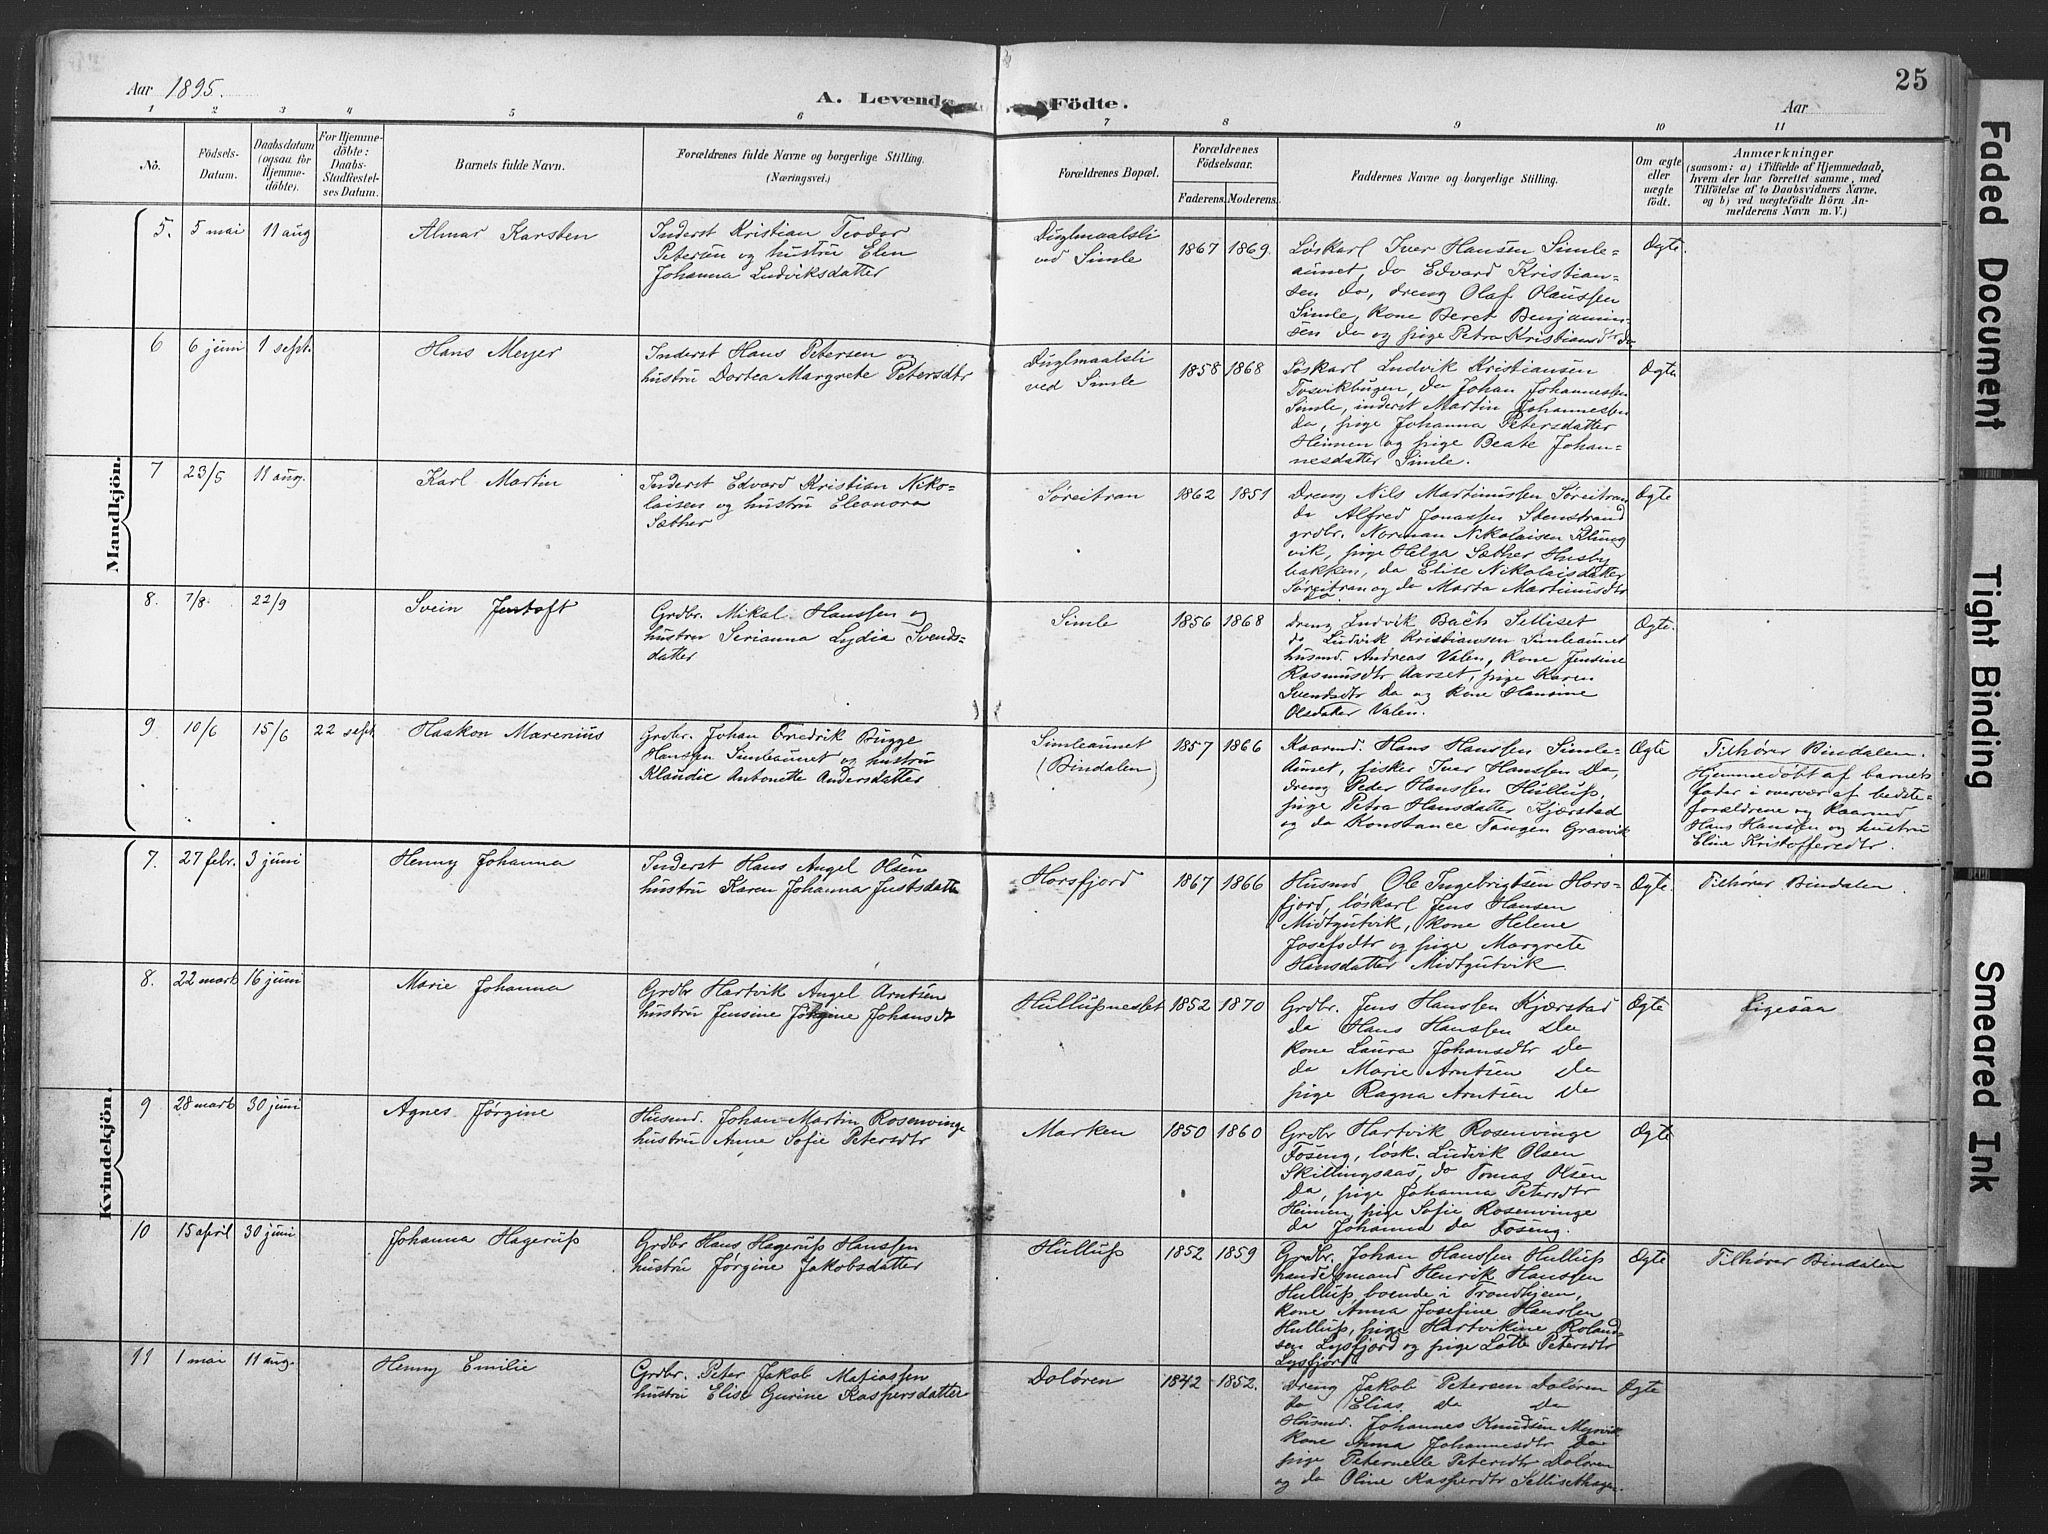 Aar 1895.
A. Levende Födte.
Aar
25
1 2 3 4 5 6 7 8 9 10 11
No.
Födsels-
Datum.
Daabsdatum
(ogsaa for
Hjemme-
döbte).
For Hjemme-
döbte:
Daabs-
Stadfæstel-
ses Datum.
Barnets fulde Navn.
Forældrenes fulde Navne og borgerlige Stilling.
(Næringsvei.)
Forældrenes Bopæl.
Forældrenes
Födselsaar.
Faderens. Moderens.
Faddernes Navne og borgerlige Stilling.
Om ægte
eller
uægte
födt.
Anmærkninger
(saasom: a) i Tilfælde af Hjemmedaab,
hvem der har forrettet samme, med
Tilföielse af to Daabsvidners Navne,
og b) ved uægtefödte Börn An-
melderens Navn m. V.)
Mandkjön.
5. 5 mai 11 aug Almar Karsten
Inderst Kristian Teodor
Petersen og hustru Elen
Johanna Ludviksdatter
Duglmaalsli
ved Simle
1867 1869.
Løskarl Iver Hansen Simle-
aunet, do Edvard Kristian-
sen do, dreng Olaf Olaussen
Simle, kone Beret Benjamin-
sen do og pige Petra Kristiansdtr do
Ægte.
6 6 juni 1 sept. Hans Meyer
Inderst Hans Petersen og
hustru Dortea Margrete Petersdtr
Duglmaalsli
ved Simle
1858 1868
Løskarl Ludvik Kristiansen
Tosvikbugen, do Johan Johannessen
Simle, inderst Martin Johannessen
do, pige Johanna Petersdatter
Heimen og pige Beate Johan-
nesdatter Simle.
Ægte
7 23/5 11 aug. Karl Martin
Inderst Edvard Kristian Niko-
laisen og hustru Eleonora
Sæther
Søreitran
1862 1851
Dreng Nils Martinussen Søreitran
do Alfred Jonassen Stenstrand
grdbr. Norman Nikolaisen Kling
vik, pige Helga Sæther Husby
bakken, do Elise Nikolaisdatter
Søreitran og do Marta Martinusdtr
do.
Ægte
8. 7/8. 22/9 Svein Jentoft
Grdbr. Mikal Hanssen og
hustru Serianna Lydia Svends-
datter
Simle
1856 1868
Dreng Ludvik Bach Selliset
do Ludvik Kristiansen Simleaunet
husmd. Andreas Valen, kone Jensine
Rasmusdtr Aarset, pige Karen
Svendsdtr do og kone Hansine
Olsdatter Valen.
Ægte.
9. 10/6 15/6 22 sept. Haakon Marenius
Grdbr. Johan Fredrik Bugge
Hanssen Simleaunet og hustru
Klaudie Antonette Andersdatter
Simleaunet
(Bindalen)
1857 1866
Kaarmd. Hans Hanssen Simle-
aunet, fisker Iver Hanssen do,
dreng Peder Hanssen Hulluss,
pige Petra Hansdatter Kjærstad
og do Konstance Tangen Gravik
Ægte
Tilhører Bindalen.
Hjemmedøbt af barnets
fader i overvær af bedste-
forældrene og Kaarmd
Hans Hanssen og hustru
Eline Kristoffersdtr.
Kvindekjön.
7. 27 febr. 3 juni Henny Johanna
Inderst Hans Angel Olsen
hustru Karen Johanna Justsdatter
Horsfjord
1867 1866
Husmd Ole Ingebrigtsen Hors-
fjord, løskarl Jens Hansen
Midtgutvik, kone Helene
Josefsdtr og pige Margrete
Hansdatter Midtgutvik.
Ægte.
Tilhører Bindalen.
8. 22 marts 16 juni Marie Johanna
Grdbr Hartvik Angel Arntsen
hustru Jensine Jørgine Johansdt
Hullusneset
1852 1870
Grdbr. Jens Hanssen Kjærstad
do Hans Hanssen do
kone Laura Johansdtr do
do Marie Arntsen do
pige Ragna Arntsen do
Ægte
Ligesaa
9 28 marts 30 juni Agnes Jørgine
Husmd. Johan Martin Rosenvinge
hustru Anne Sofie Petersdtr
Marken
1850 1860
Grdbr Hartvik Rosenvinge
Foseng, løsk. Ludvik Olsen
Skillingsaas, do Tomas Olsen
do, pige Johanna Petersdtr
Heimen, pige Sofie Rosenvinge
do Johanna do Foseng.
Ægte
10 15 april 30 juni Johanna Hageruss
Grdbr Hans Hageruss Hanssen
hustru Jørgine Jakobsdatter
Hulluss
1852 1859
Grdbr. Johan Hanssen Hulluss
handelsmand Henrik Hanssen
Hulluss, boende i Trondhjem,
kone Anna Josefine Hanssen
Hulluss, pige Hartvikine Roland-
sen Lysfjord og pige Lotte Petersdtr
Lysfjord
Ægte
Tilhører Bindalen
11 1 mai 11 aug. Henny Emilie
Grdbr. Peter Jakob Matiassen
hustru Elise Gurine Kaspersdatter
Doløren
1842 1852.
Dreng Jakob Petersen Doløren
do Elias do do
Husmd. Johannes Knudsen
kone Anna Johannesdtr do
pige Peternelle Petersdtr Doløren
og do Oline Kaspersdtr Sellisethagen.
Ægte
Faded Document
Tight Binding
Smeared Ink